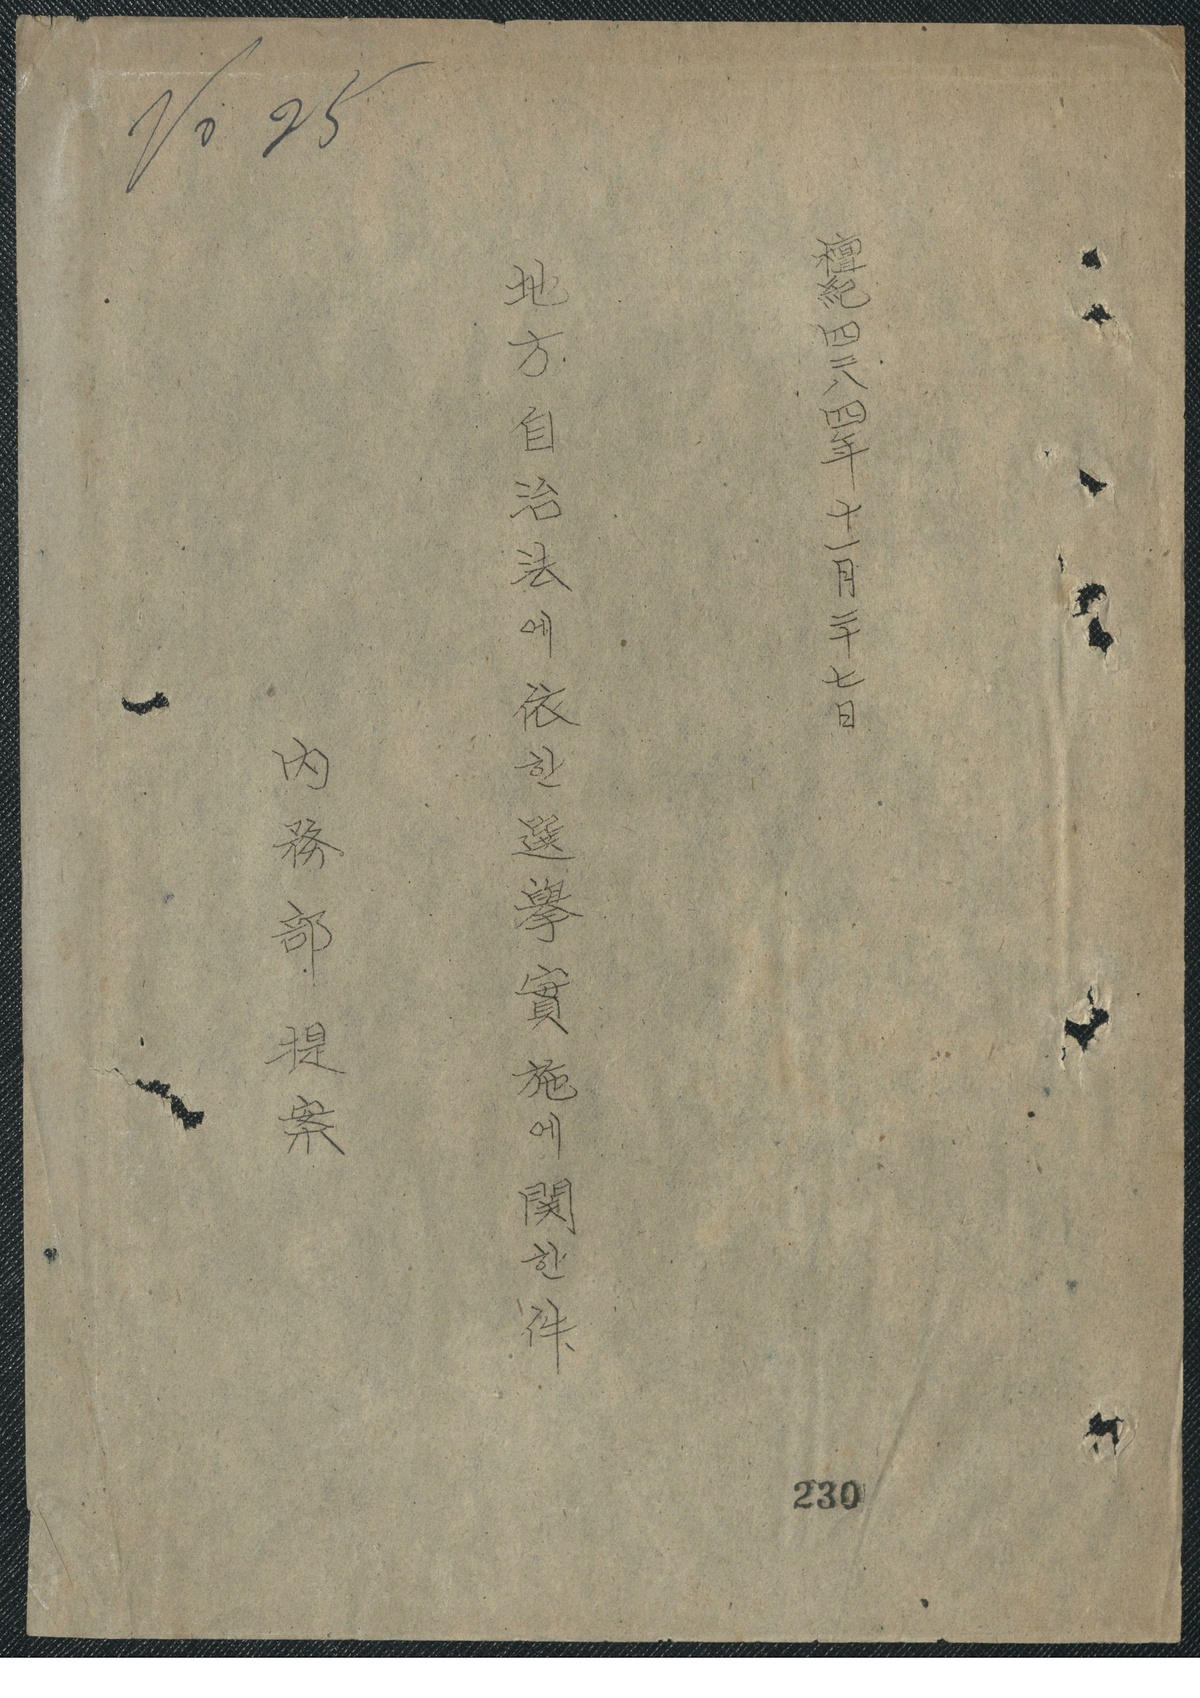 No 25
檀紀四二八四年十一月二十七日
地方自治法에依한選擧實施에関한件
內務部提案
230